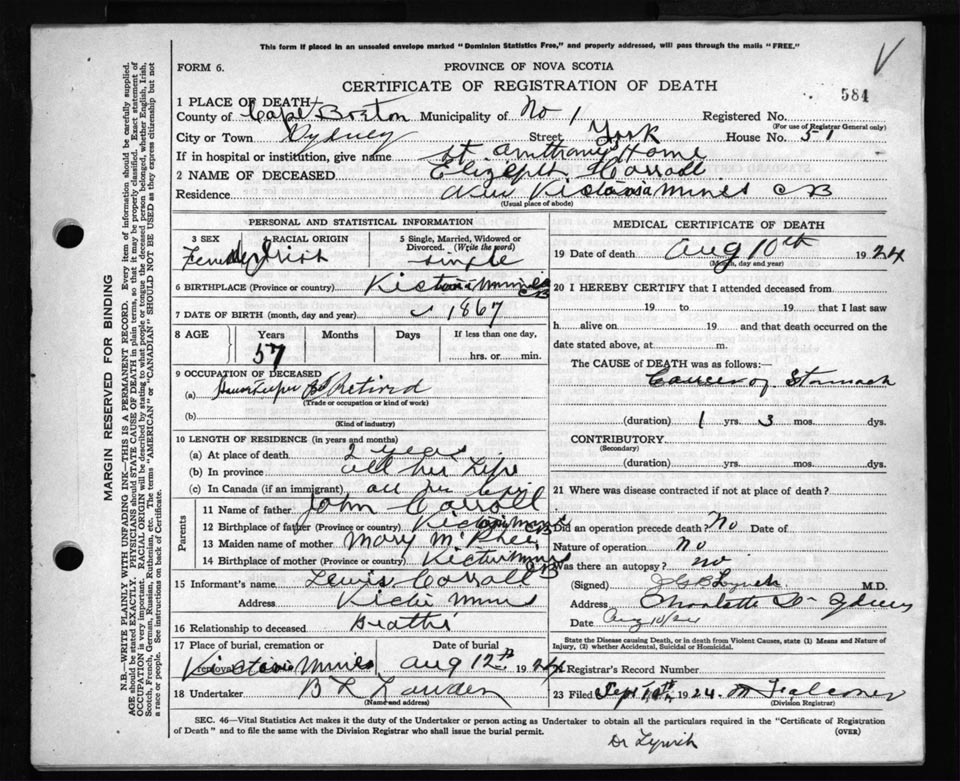 This form if placed in an unsealed envelope marked "Dominion Statistics Free," and properly addressed, will pass through the mails "FREE."
FORM 6.
PROVINCE OF NOVA SCOTIA
CERTIFICATE OF REGISTRATION OF DEATH
584
1 PLACE OF DEATH
County of Cape Breton Municipality of No 1 Registered No.
(For use of Registrar General only)
City or Town Sydney Street York House No. 51
If in hospital or institution, give name St. Home
2 NAME OF DECEASED Carroll
Residence New Victoria Mines CB
(Usual place of abode)
MARGIN RESERVED FOR BINDING
N.B.—WRITE PLAINLY WITH UNFADING INK—THIS IS A PERMANENT RECORD. Every item of information should be carefully supplied.
AGE should be stated EXACTLY. PHYSICIANS should STATE CAUSE OF DEATH in plain terms, so that it may be properly classified. Exact statement of
OCCUPATION is very important. RACIAL ORIGIN will be described by stating to what people or tongue the deceased person belonged, whether English, Irish,
Scotch, French, German, Russian, Ruthenian, etc. The terms "AMERICAN" or "CANADIAN" SHOULD NOT BE USED as they express citizenship but not
a race or people. See instructions on back of Certificate.
PERSONAL AND STATISTICAL INFORMATION
3 SEX 4 RACIAL ORIGIN 5 Single, Married, Widowed or
Divorced. (Write the word)
Female Irish single
6 BIRTHPLACE (Province or country) Victoria Mines CB
7 DATE OF BIRTH (month, day and year) 1867
8 AGE Years Months Days If less than one day,
57 hrs. or min.
9 OCCUPATION OF DECEASED
(a) Housekeeper Retired
(Trade or occupation or kind of work)
(b)
(Kind of industry)
10 LENGTH OF RESIDENCE (in years and months)
(a) At place of death 2 years
(b) In province all her Life
(c) In Canada (if an immigrant) all her Life
Parents
11 Name of father John Carroll
12 Birthplace of father (Province or country) Victoria Mines
13 Maiden name of mother Mary McPhee
14 Birthplace of mother (Province or country) Victor Mines CB
15 Informant's name Lewis Carroll
Address Mines
16 Relationship to deceased
17 Place of burial, cremation or removal Date of burial
Victoria Mines Aug 12th 1924
18 Undertaker
(Name and address)
MEDICAL CERTIFICATE OF DEATH
19 Date of death Aug 10th 1924
(Month, day and year)
20 I HEREBY CERTIFY that I attended deceased from
19 to 19 that I last saw
h alive on 19 and that death occurred on the
date stated above, at m.
The CAUSE of DEATH was as follows:—
Cancer of Stomach
(duration) 1 yrs. 3 mos. dys.
CONTRIBUTORY
(Secondary)
(duration) yrs. mos. dys.
21 Where was disease contracted if not at place of death?
Did an operation precede death? No Date of
Nature of operation no
Was there an autopsy? no
(Signed) Lynch M.D.
Address Charlotte St Sydney
Date Aug 10/24
State the Disease causing Death, or in death from Violent Causes, state (1) Means and Nature of
Injury, (2) whether Accidental, Suicidal or Homicidal.
22 Registrar's Record Number
23 Filed Sept 1924 Falconer
(Division Registrar)
SEC. 46—Vital Statistics Act makes it the duty of the Undertaker or person acting as Undertaker to obtain all the particulars required in the "Certificate of Registration
of Death" and to file the same with the Division Registrar who shall issue the burial permit.
(OVER)
Dr Lynch